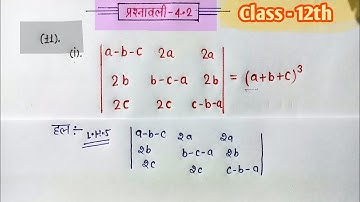 प्रश्नावली-4.2
Class - 12th
(11).
(i).
a-b-c 2a 2a
2b b-c-a 2b = (a+b+c)³
2c 2c c-b-a
हल :- L.H.S
a-b-c 2a 2a
2b b-c-a 2b
2c 2c c-b-a